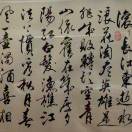 滚滚長江東逝水
浪花淘盡英雄是
非成敗轉頭空青
山依舊在幾度夕
陽紅白髮漁樵江
渚上慣看秋月春
風一壺濁酒喜相